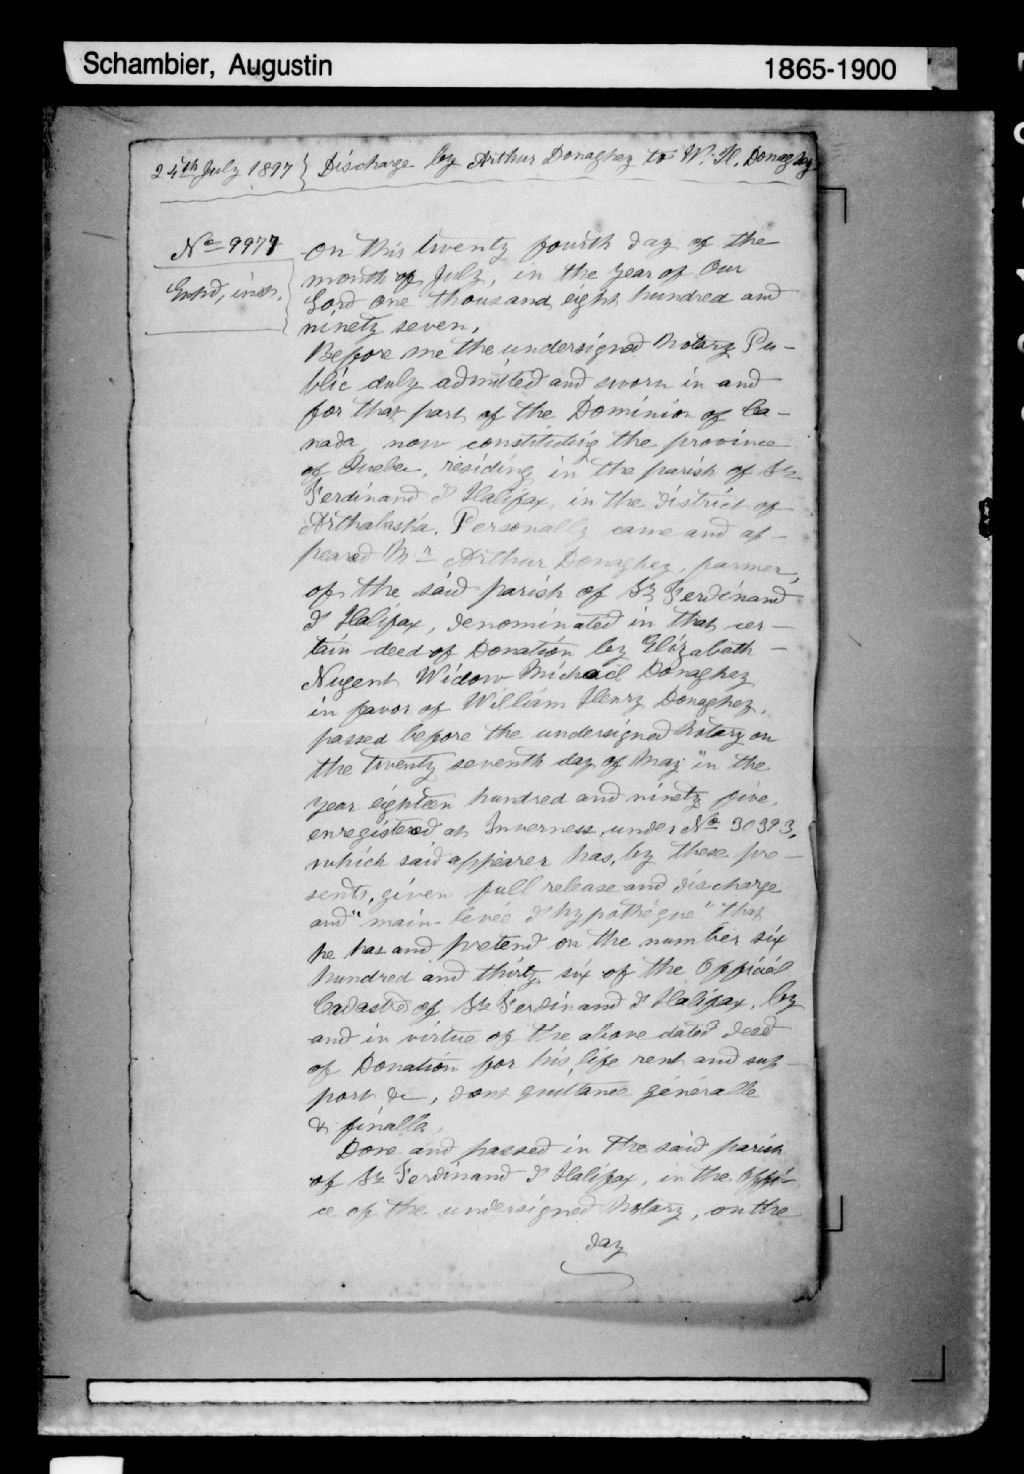 Schambier, Augustin 1865-1900
24th July 1897 } Discharge by Arthur Donaghey to W. H. Donaghey
No 9977
On this twenty fourth day of the
month of July, in the year of Our
Lord one thousand eight hundred and
ninety seven,
Before me the undersigned Notary Pu-
blic duly admitted and sworn in and
for that part of the Dominion of Ca-
nada now constituting the province
of Quebec, residing in the parish of St
Ferdinand d'Halifax, in the district of
Arthabaska. Personally came and ap-
peared Mr Arthur Donaghey, farmer,
of the said parish of St Ferdinand
d'Halifax, denominated in that cer-
tain deed of Donation by Elizabeth
Nugent Widow Michael Donaghey
in favor of William Henry Donaghey,
passed before the undersigned Notary on
the twenty seventh day of May in the
year eighteen hundred and ninety five,
enregistered at Inverness under No 30393,
which said appearer has, by these pre-
sents, given full release and discharge
and "main-levée d'hypothéque" that
he has and pretend on the number six
hundred and thirty six of the Official
Cadastre of St Ferdinand d'Halifax, by
and in virtue of the above dated deed
of Donation for his life rent and sup-
port &c, dont quittance générale
& finalle.
Done and passed in the said parish
of St Ferdinand d'Halifax, in the Offi-
ce of the undersigned Notary, on the
day